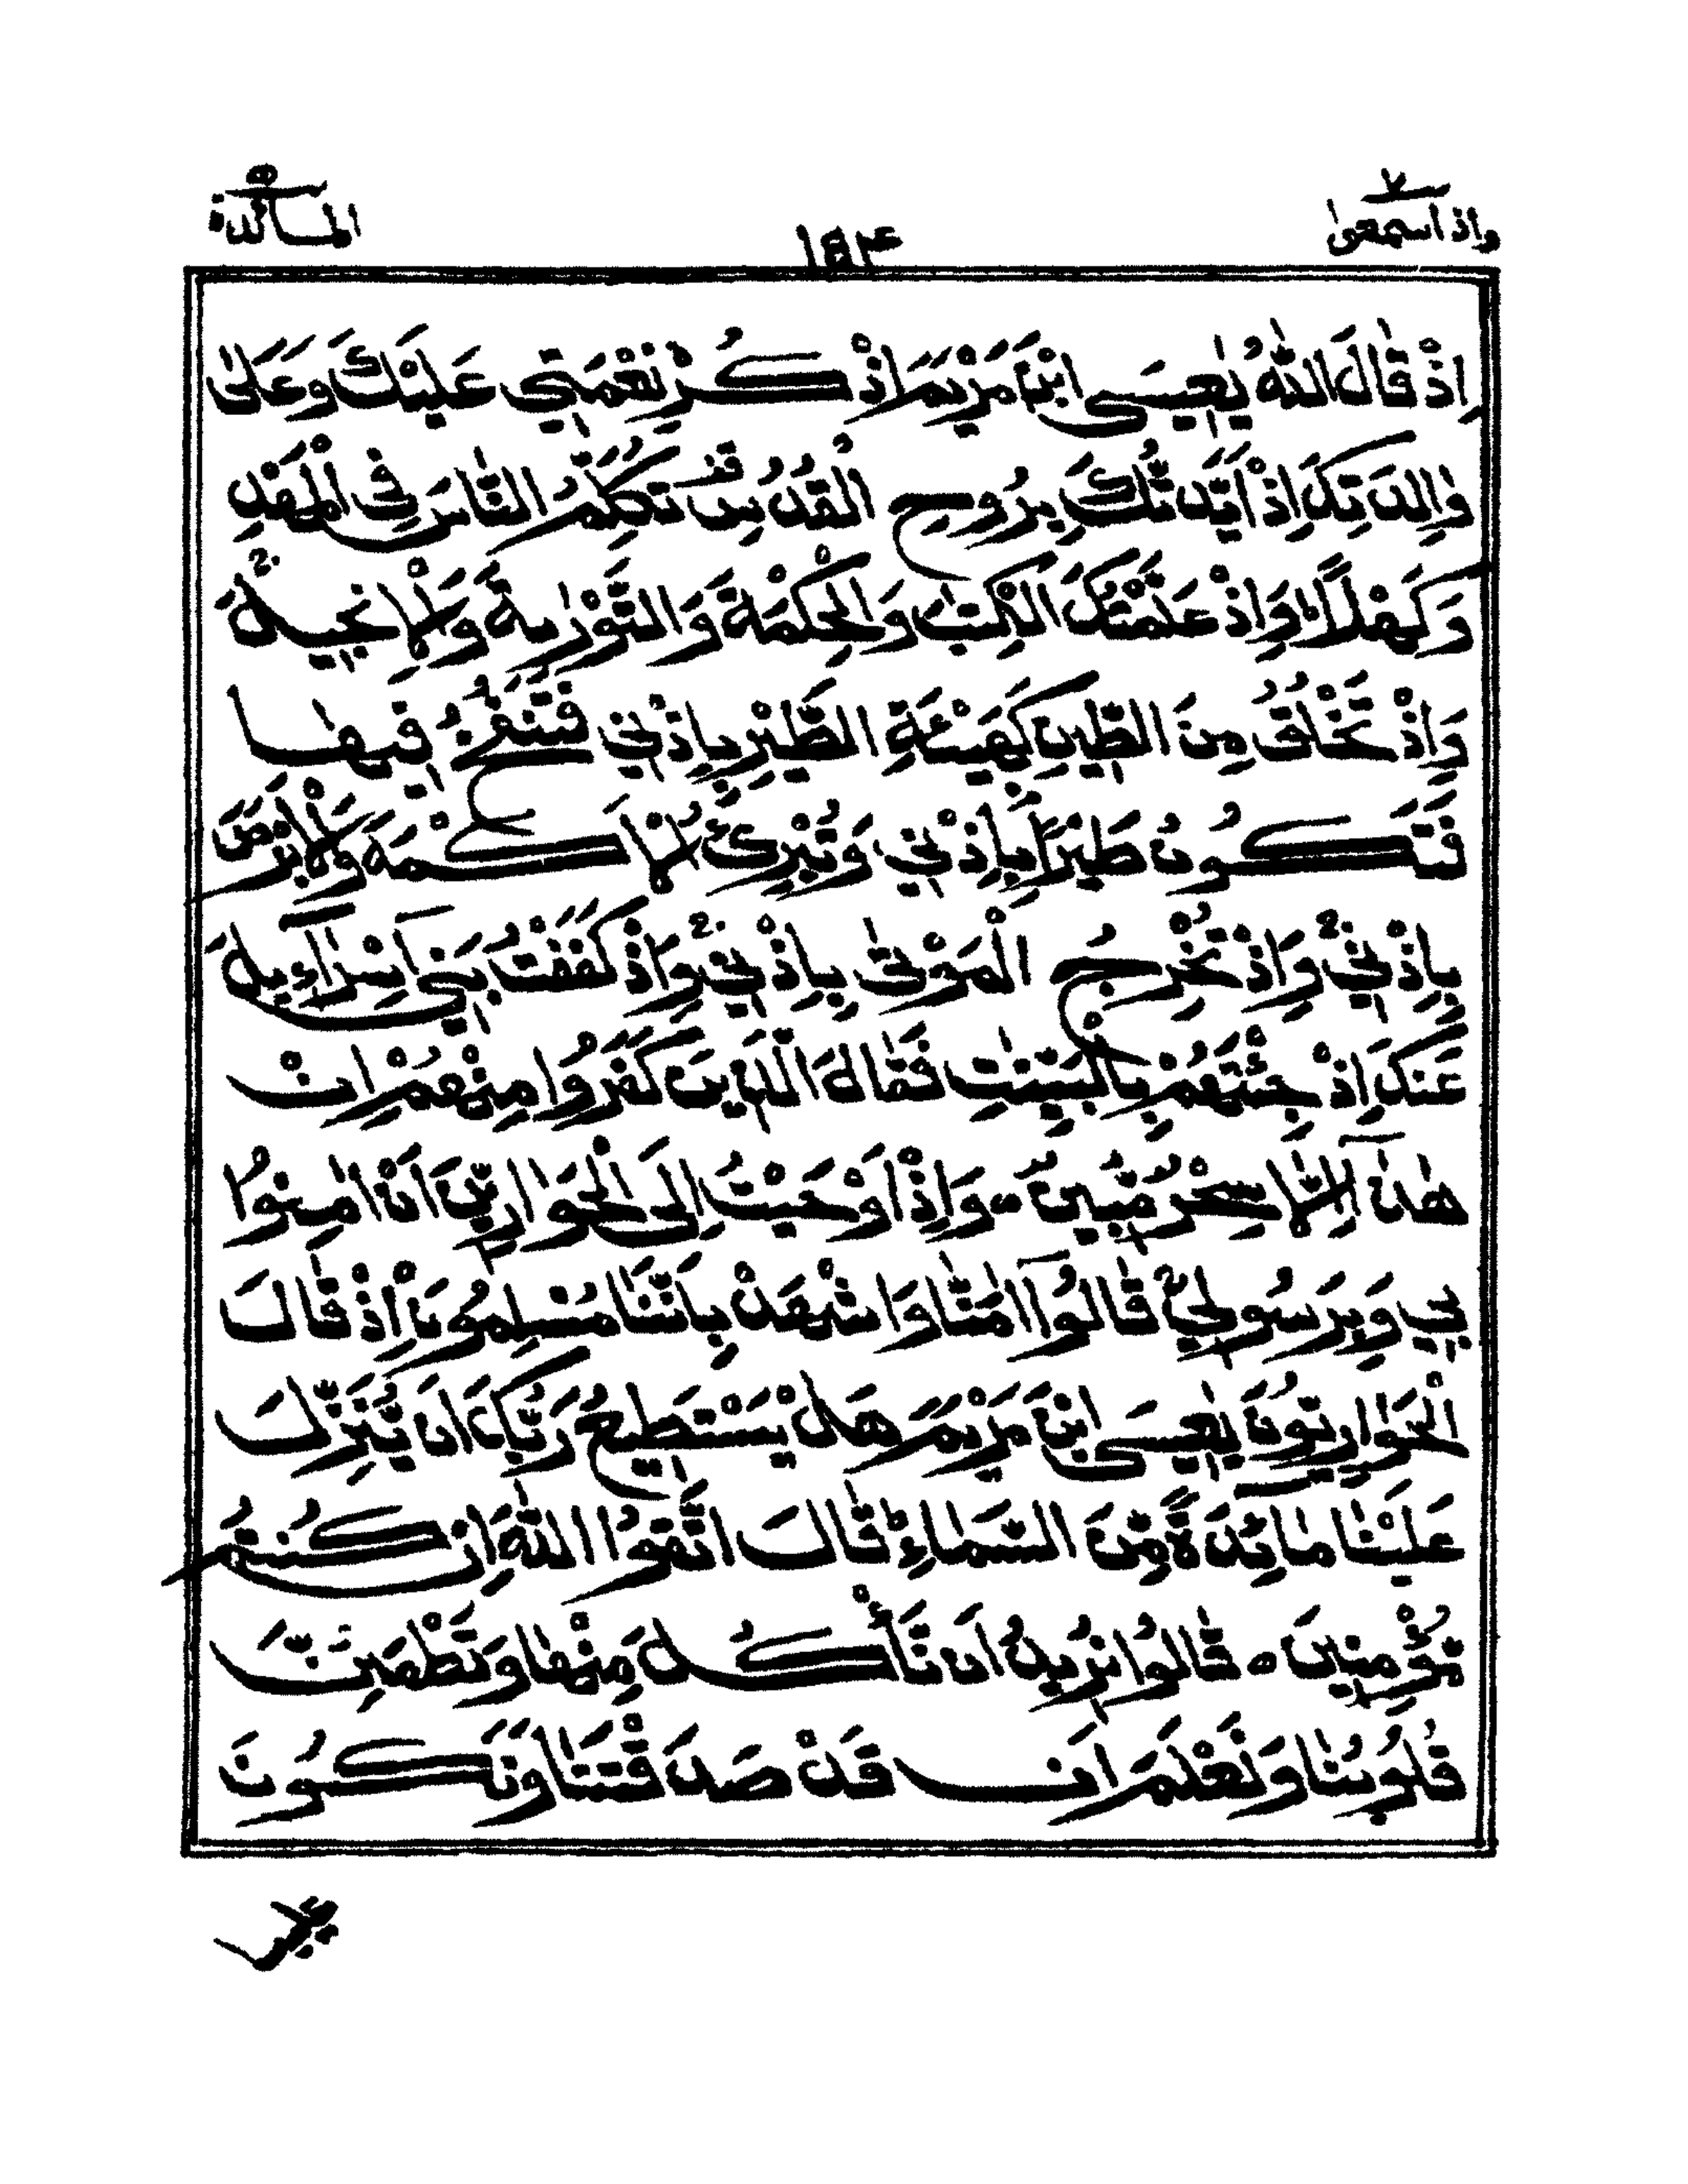 واذا سمعوا ٧
١٥٤
المائدة ٥
اِذْ قَالَ اللّٰهُ يٰعِيسَى ابْنَ مَرْيَمَ اذْكُرْ نِعْمَتِي عَلَيْكَ وَعَلٰى
وَالِدَتِكَ اِذْ اَيَّدْتُّكَ بِرُوحِ الْقُدُسِ تُكَلِّمُ النَّاسَ فِي الْمَهْدِ
وَكَهْلًا وَاِذْ عَلَّمْتُكَ الْكِتٰبَ وَالْحِكْمَةَ وَالتَّوْرٰىةَ وَالْاِنْجِيلَ
وَاِذْ تَخْلُقُ مِنَ الطِّينِ كَهَيْئَةِ الطَّيْرِ بِاِذْنِي فَتَنْفُخُ فِيهَا
فَتَكُونُ طَيْرًا بِاِذْنِي وَتُبْرِئُ الْاَكْمَهَ وَالْاَبْرَصَ
بِاِذْنِي وَاِذْ تُخْرِجُ الْمَوْتٰى بِاِذْنِي وَاِذْ كَفَفْتُ بَنِي اِسْرَآءِيلَ
عَنْكَ اِذْ جِئْتَهُمْ بِالْبَيِّنٰتِ فَقَالَ الَّذِينَ كَفَرُوا مِنْهُمْ اِنْ
هٰذَآ اِلَّا سِحْرٌ مُّبِينٌ وَاِذْ اَوْحَيْتُ اِلَى الْحَوَارِيّٖنَ اَنْ اٰمِنُوا
بِي وَبِرَسُولِي قَالُوٓا اٰمَنَّا وَاشْهَدْ بِاَنَّنَا مُسْلِمُونَ اِذْ قَالَ
الْحَوَارِيُّونَ يٰعِيسَى ابْنَ مَرْيَمَ هَلْ يَسْتَطِيعُ رَبُّكَ اَنْ يُّنَزِّلَ
عَلَيْنَا مَآئِدَةً مِّنَ السَّمَآءِ قَالَ اتَّقُوا اللّٰهَ اِنْ كُنْتُمْ
مُّؤْمِنِينَ ○ قَالُوا نُرِيدُ اَنْ نَّأْكُلَ مِنْهَا وَتَطْمَئِنَّ
قُلُوبُنَا وَنَعْلَمَ اَنْ قَدْ صَدَقْتَنَا وَنَكُونَ